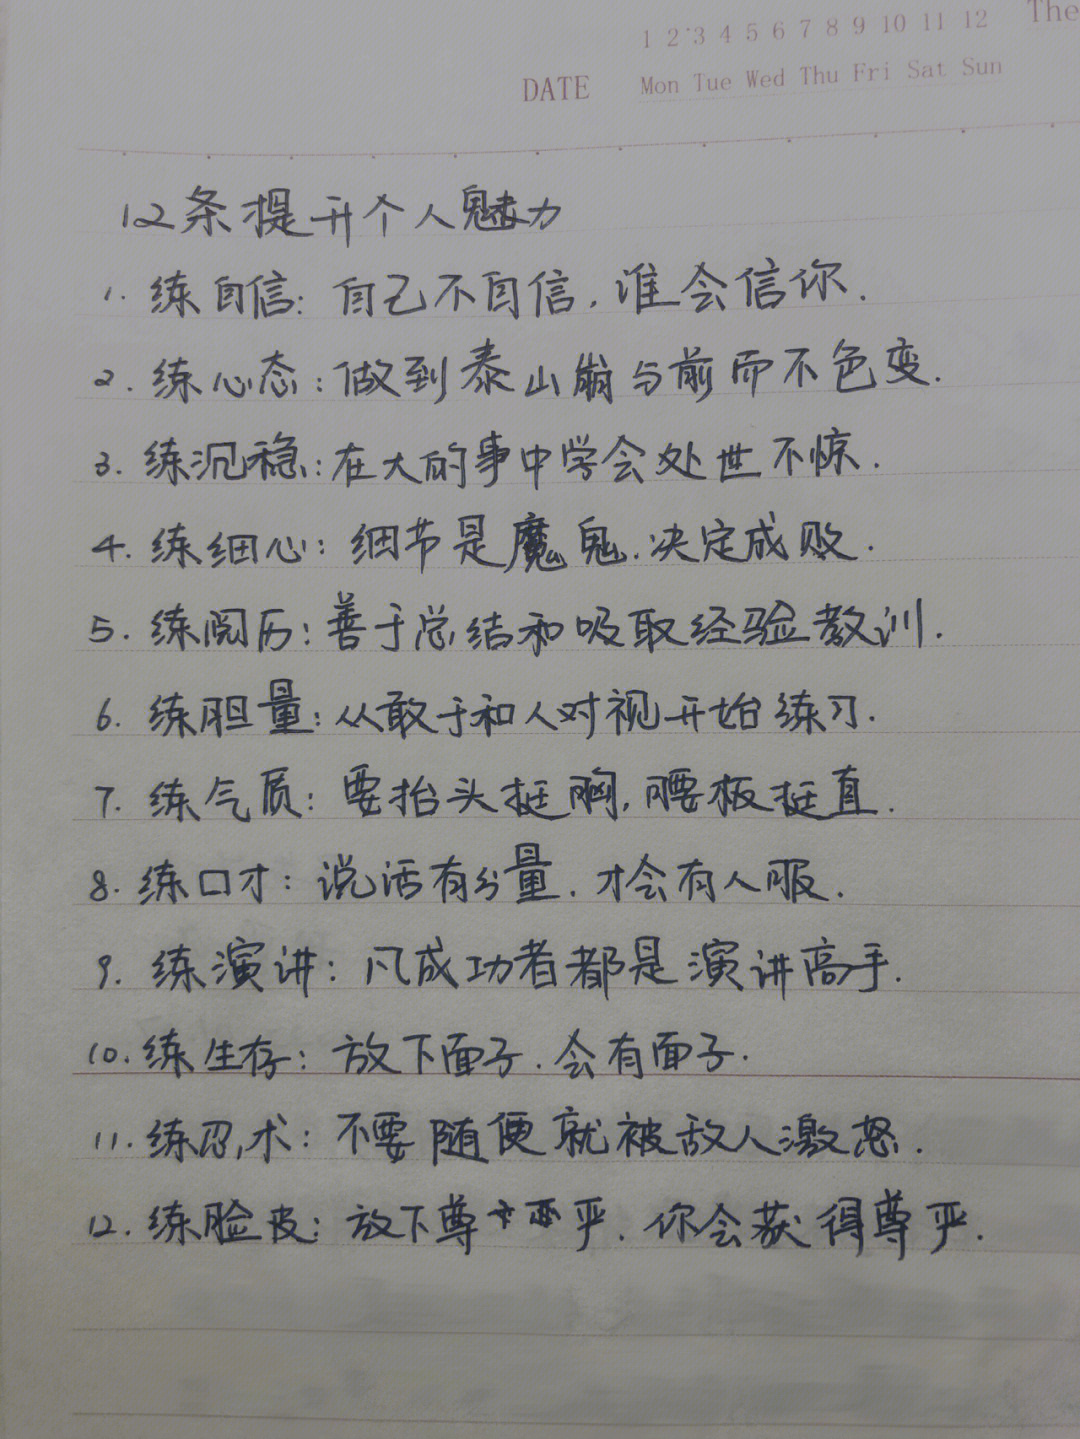 1 2 3 4 5 6 7 8 9 10 11 12 The
DATE Mon Tue Wed Thu Fri Sat Sun
12条提升个人魅力
1. 练自信: 自己不自信, 谁会信你.
2. 练心态: 做到泰山崩与前而不色变.
3. 练沉稳: 在大的事中学会处世不惊.
4. 练细心: 细节是魔鬼. 决定成败.
5. 练阅历: 善于总结和吸取经验教训.
6. 练胆量: 从敢于和人对视开始练习.
7. 练气质: 要抬头挺胸, 腰板挺直.
8. 练口才: 说话有分量. 才会有人服.
9. 练演讲: 凡成功者都是演讲高手.
10. 练生存: 放下面子. 会有面子.
11. 练忍术: 不要随便就被敌人激怒.
12. 练脸皮: 放下尊严. 你会获得尊严.